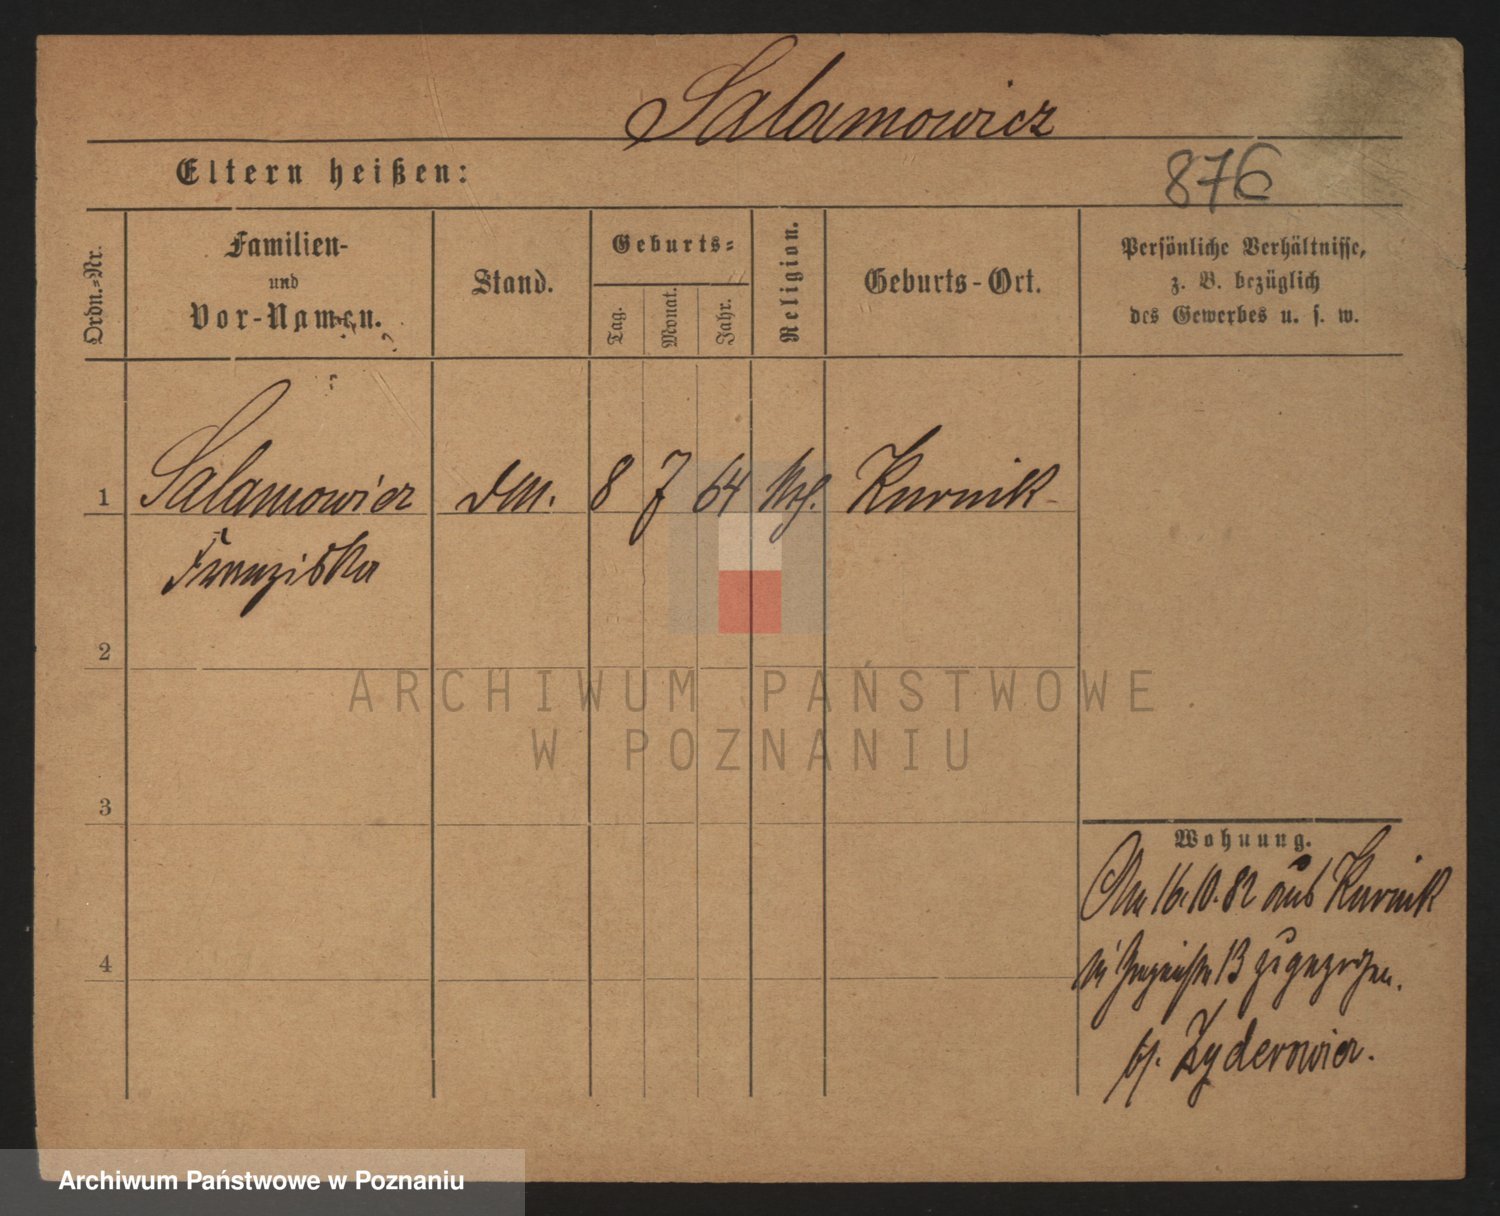 Salamowicz
Eltern heißen:
876
Ordn.-Nr.
Familien-
und
Vor-Namen.
Stand.
Geburts-
Tag.
Monat.
Jahr.
Religion.
Geburts-Ort.
Persönliche Verhältnisse,
z. B. bezüglich
des Gewerbes u. s. w.
1 Salamowicz 8 7 64 Kurnik
Franziska
2
ARCHIWUM PAŃSTWOWE
W POZNANIU
3
Wohnung.
Am 16.10.82 aus Kurnik
13 zugezogen.
4
b/. Zyderowicz.
Archiwum Państwowe w Poznaniu